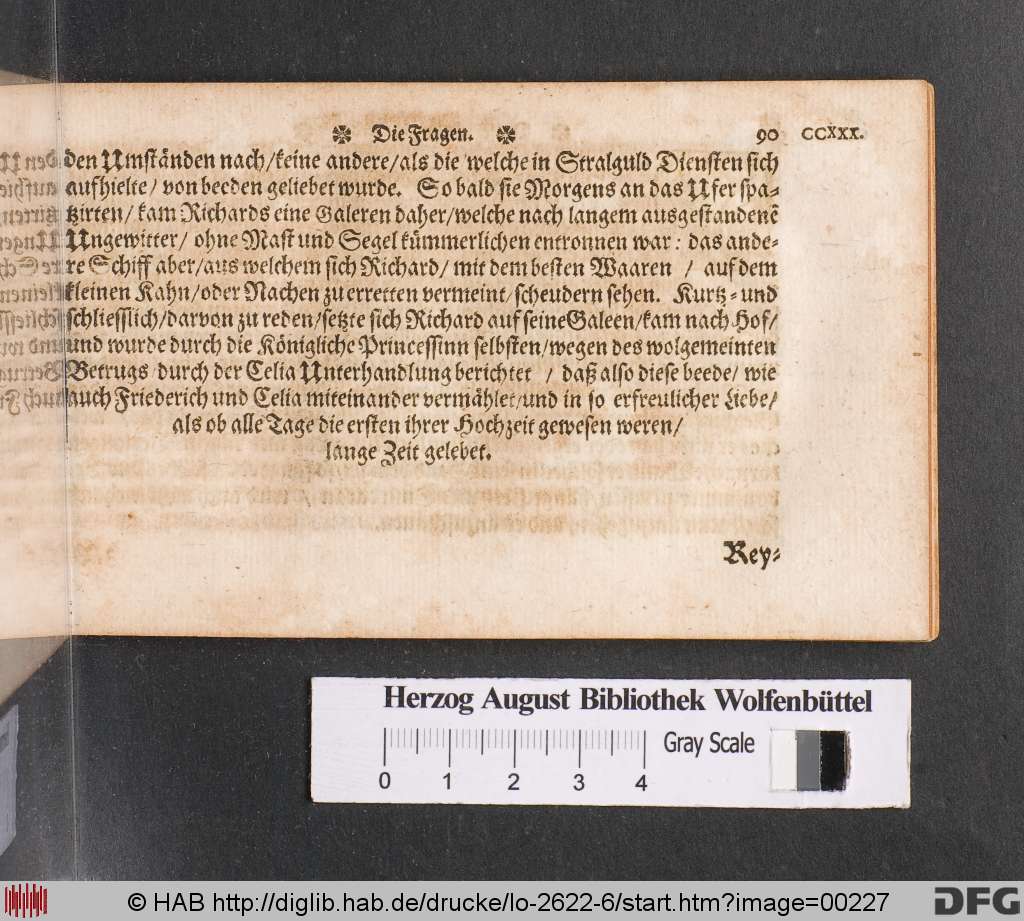 ❇ Die Fragen. ❇ 90 CCXXX.
den Umständen nach/keine andere/als die welche in Stralguld Diensten sich
aufhielte/ von beeden geliebet wurde. So bald sie Morgens an das Ufer spa-
tzirten/ kam Richards eine Galeren daher/welche nach langem ausgestandenē
Ungewitter/ ohne Mast und Segel kümmerlichen entronnen war: das ande-
re Schiff aber/aus welchem sich Richard/ mit dem besten Waaren / auf dem
kleinen Kahn/oder Nachen zu erretten vermeint/scheudern sehen. Kurtz-und
schliesslich/darvon zu reden/setzte sich Richard auf seine Galeen/kam nach Hof/
und wurde durch die Königliche Princessinn selbsten/wegen des wolgemeinten
Betrugs/durch der Celia Unterhandlung berichtet / daß also diese beede/ wie
auch Friederich und Celia miteinander vermählet/und in so erfreulicher Liebe/
als ob alle Tage die ersten ihrer Hochzeit gewesen weren/
lange Zeit gelebet.
Rey-
Herzog August Bibliothek Wolfenbüttel
Gray Scale
0 1 2 3 4
© HAB http://diglib.hab.de/drucke/lo-2622-6/start.htm?image=00227
DFG